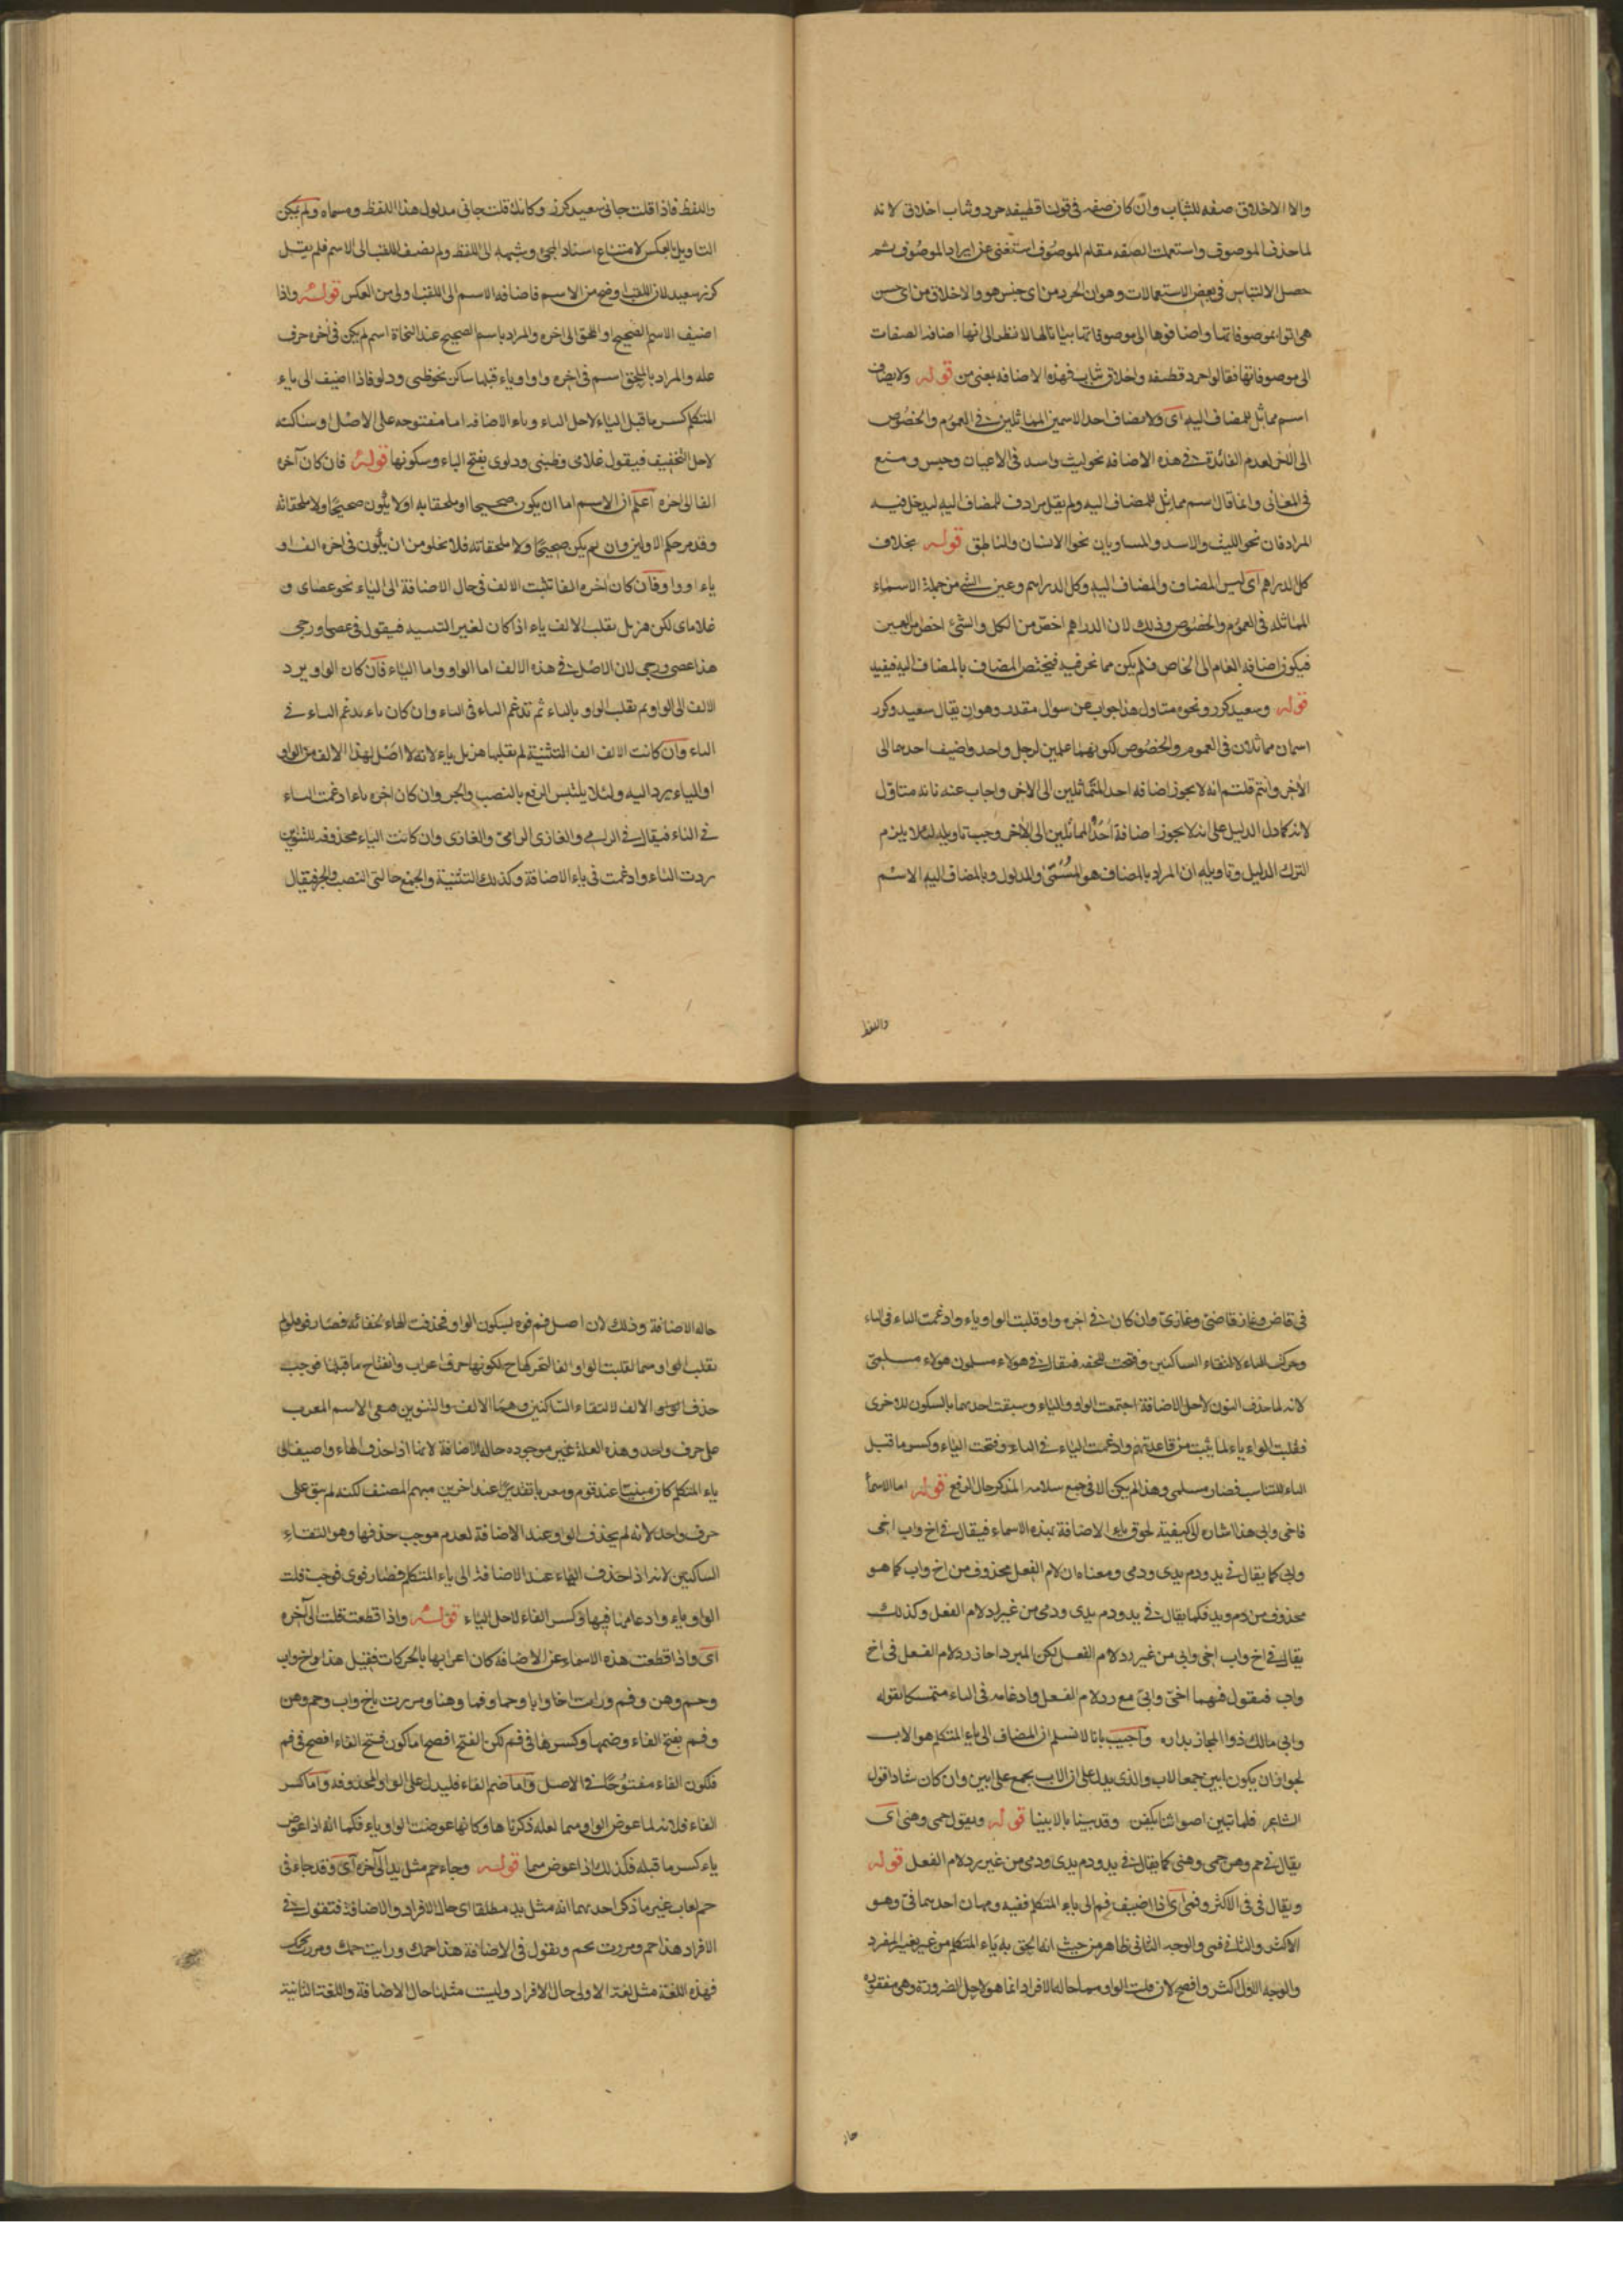 والا الاخلاق صفه للثياب وان كان صفه فى قولنا قطيفه جرد وثياب اخلاق لانه
لما حذف الموصوف واستعملت الصفه مقام الموصوف استغنى عن ايراد الموصوف ثم
حصل الالتباس فى بعض الاستعمالات وهو ان الجرد من اى جنس هو والاخلاق من اى جنس
هى اتوا بموصوفاتها واضافوها الى موصوفاتها بيانا لها لا نظر الى انها اضافه الصفات
الى موصوفاتها فقالوا جرد قطيفه واخلاق ثياب فهذه الاضافه بمعنى من قوله ولا يضاف
اسم مماثل للمضاف اليه اى ولا يضاف احد الاسمين المماثلين فى العموم والخصوص
الى الاخر لعدم الفائدة فى هذه الاضافه نحو ليث واسد فى الاعيان وحبس ومنع
فى المعانى وانما قال اسم مماثل للمضاف اليه ولم يقل مرادف للمضاف اليه ليدخل فيه
المرادفان نحو الليث والاسد والمساويان نحو الانسان والناطق قوله بخلاف
كل الدراهم اى ليس المضاف والمضاف اليه وكل الدراهم وعين الشئ من جملة الاسماء
المماثله فى العموم والخصوص وذلك لان الدراهم اخص من الكل والشئ اخص من العين
فيكون اضافه العام الى الخاص فلم يكن مما نحن فيه فيختص المضاف بالمضاف اليه فيفيد
قوله وسعيد كرز ونحوه متاول هذا جواب عن سوال مقدر وهو ان يقال سعيد وكرز
اسمان مماثلان فى العموم والخصوص لكونهما علمين لرجل واحد واضيف احدهما الى
الاخر وانتم قلتم انه لا يجوز اضافه احد المتماثلين الى الاخر واجاب عنه بانه متاول
لانه كما دل الدليل على انه لا يجوز اضافة احد المماثلين الى الاخر وجب تاويله لئلا يلزم
الترك الدليل وتاويله ان المراد بالمضاف هو المسمى والمدلول وبالمضاف اليه الاسم
واللفظ
واللفظ فاذا قلت جانى سعيد كرز وكانك قلت جانى مدلول هذا اللفظ ومسماه ولم يمكن
التاويل بالعكس لامتناع اسناد المجئ وشبهه الى اللفظ ولم يضف اللقب الى الاسم فلم يقل
كرز سعيد لان اللقب اوضح من الاسم فاضافه الاسم الى اللقب اولى من العكس قوله واذا
اضيف الاسم الصحيح او الملحق الى اخره والمراد باسم الصحيح عند النحاة اسم لم يكن فى اخره حرف
عله والمراد بالملحق اسم فى اخره واو او ياء قبلها ساكن نحو ظبى ودلو فاذا اضيف الى ياء
المتكلم كسر ما قبل الياء لاجل الياء وياء الاضافه اما مفتوحه على الاصل او ساكنه
لاجل التخفيف فيقول غلامى وظبيى ودلوى بفتح الياء وسكونها قوله فان كان آخره
الفا الى اخره اعلم ان الاسم اما ان يكون صحيحا او ملحقا به او لا يكون صحيحا ولا ملحقا به
وقد مر حكم الاولين وان لم يكن صحيحا ولا ملحقا به فلا يخلو من ان يكون فى اخره الف او
ياء او واو فان كان اخره الفا تثبت الالف فى حال الاضافة الى الياء نحو عصاى و
غلاماى لكن هزيل يقلب الالف ياء اذا كان لغير التثنيه فيقول فى عصا ورحى
هذا عصى ورحى لان الاصل فى هذه الالف اما الواو واما الياء فان كان الواو يرد
الالف الى الواو ثم يقلب الواو بالياء ثم تدغم الياء فى الياء وان كان ياء يدغم الياء فى
الياء وان كانت الالف الف التثنية لم يقلبها هزيل ياء لانه لا اصل لهذا الالف من الواو
او الياء يرد اليه ولئلا يلتبس الرفع بالنصب والجر وان كان اخره ياء ادغمت الياء
فى الياء فيقال فى الرامى والغازى الرامىّ والغازى وان كانت الياء محذوفه للتنوين
ردت الياء وادغمت فى ياء الاضافة وكذلك التثنية والجمع حالتى النصب والجر فيقال
فى قاض وغاز قاضىّ وغازىّ وان كان فى اخره واو قلبت الواو ياء وادغمت الياء فى الياء
وحركت الياء لالتقاء الساكنين وفتحت للخفه فيقال فى هولاء مسلمون هولاء مسلمىّ
لانه لما حذف النون لاجل الاضافة اجتمعت الواو والياء وسبقت احدهما بالسكون للاخرى
فقلبت الواو ياء لما يثبت من قاعدتهم وادغمت الياء فى الياء وفتحت الياء وكسر ما قبل
الياء للتناسب فصار مسلمى وهذا لم يكن الا فى جمع سلامه المذكر حال الرفع قوله اما الاسماء
فاخى وابى هذا اشاره الى كيفية لحوق ياء الاضافة بهذه الاسماء فيقال فى اخ واب اخى
وابى كما يقال فى يد ودم يدى ودمى ومعناه ان لام الفعل محذوف من اخ واب كما هو
محذوف من دم ويد فكما يقال فى يد ودم يدى ودمى من غير رد لام الفعل وكذلك
يقال فى اخ واب اخى وابى من غير رد لام الفعل لكن المبرد اجاز رد لام الفعل فى اخ
واب فيقول فيهما اخىّ وابىّ مع رد لام الفعل وادغامه فى الياء متمسكا بقوله
وابى مالك ذو المجاز بدار واجيب بانا لا نسلم ان المضاف الى ياء المتكلم هو الاب
لجواز ان يكون ابين جمعا لاب والذى يدل على ان الاب يجمع على ابين وان كان شاذا قول
الشاعر فلما تبين اصواتنا بكين وفديننا بالابينا قوله ويقول حمى وهنى اى
يقال فى حم وهن حمى وهنى كما يقال فى يد ودم يدى ودمى من غير رد لام الفعل قوله
ويقال فى فى الاكثر وفمى اى اذا اضيف فم الى ياء المتكلم ففيه وجهان احدهما فىّ وهو
الاكثر والثانى فمى والوجه الثانى ظاهر من حيث انه الحق به ياء المتكلم من غير تغيير المفرد
والوجه الاول اكثر وافصح لان قلب الواو ميما حاله الافراد انما هو لاجل الضرورة وهى مفقوده
حال
حاله الاضافة وذلك لان اصل فم فوه بسكون الواو فحذفت الهاء لخفائه فصار فو فلو لم
يقلب الواو ميما لقلبت الواو الفا لتحركها لكونها حرف اعراب وانفتاح ما قبلها فوجب
حذف الالف لالتقاء الساكنين وهما الالف والتنوين فبقى الاسم المعرب
على حرف واحد وهذه العلة غير موجوده حاله الاضافة لانها اذا حذف الهاء واضيف الى
ياء المتكلم كان مبنيا عند قوم ومعربا تقديرا عند اخرين منهم المصنف لكنه لم يبق على
حرف واحد لانه لم يحذف الواو عند الاضافة لعدم موجب حذفها وهو التقاء
الساكنين لانه اذا حذف الهاء عند الاضافة الى ياء المتكلم فصار فوى فوجب قلب
الواو ياء وادغامها فيها وكسر الفاء لاجل الياء قوله واذا قطعت قلت الى آخره
اى واذا قطعت هذه الاسماء عن الاضافة كان اعرابها بالحركات فقيل هذا اخ واب
وحم وهن وفم ورايت اخا وابا وحما وفما وهنا ومررت باخ واب وحم وهن
وفم بفتح الفاء وضمها وكسرها فى فم لكن الفتح افصح اما كون فتح الفاء افصح فى فم
فلكون الفاء مفتوحًا فى الاصل واما ضم الفاء فليدل على الواو المحذوفه واما كسر
الفاء فلانه لما عوض الواو ميما لعله ذكرناها وكانها عوضت الواو ياء فكما انه اذا عوض
ياء كسر ما قبله فكذلك اذا عوض ميما قوله وجاء حم مثل يد الى آخره اى وقد جاء فى
حم لغات غير ما ذكر احدهما انه مثل يد مطلقا اى حال الافراد والاضافة فتقول فى
الافراد هذا حم ومررت بحم ويقول فى الاضافة هذا حمك ورايت حمك ومررت بحمك
فهذه اللغة مثل لغة الاولى حال الافراد وليست مثلها حال الاضافة واللغة الثانية